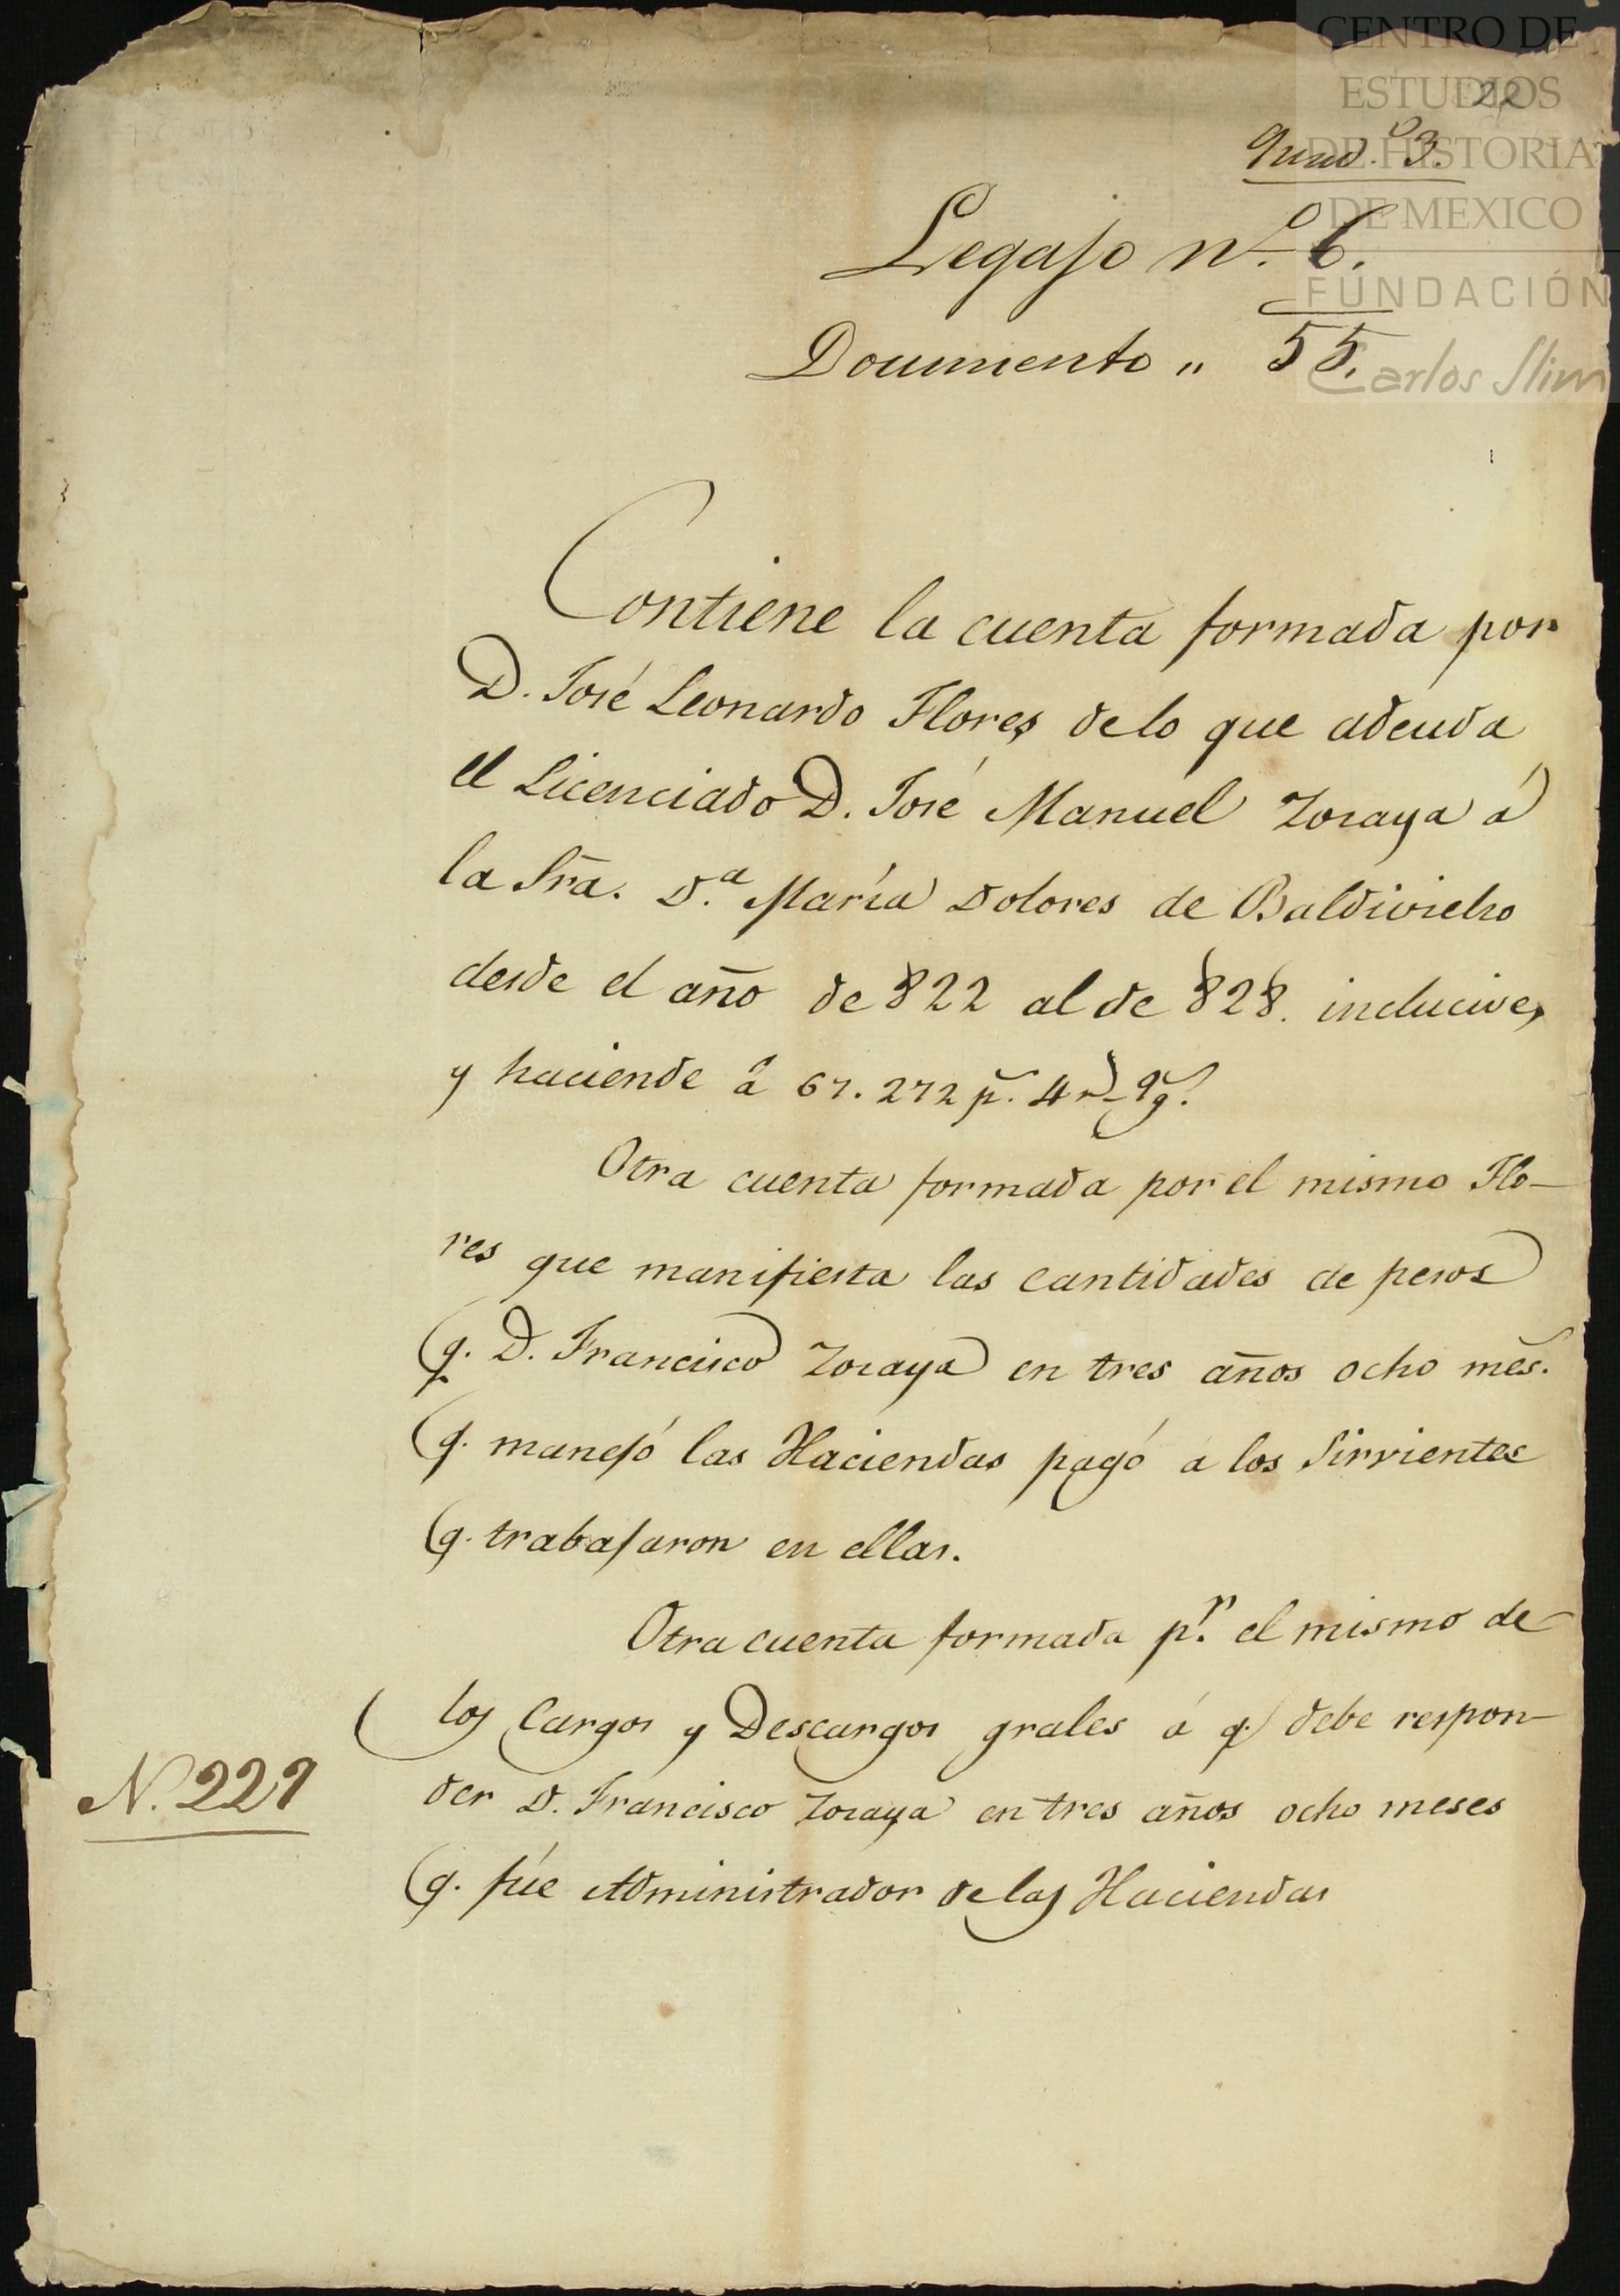 CENTRO DE
ESTUDIOS
DE HISTORIA
DE MEXICO
FUNDACIÓN
Carlos Slim
22
Quad.º 3.
Legajo nº. 6.
Documento " 55.
Contiene la cuenta formada por
D. José Leonardo Flores de lo que adeuda
el Licenciado D. José Manuel Zozaya á
la Sra. D.ª María Dolores de Baldivielso
desde el año de 822 al de 828. inclucive,
y haciende á 67.272 p.s 4 r.s
Otra cuenta formada por el mismo Flo-
res que manifiesta las cantidades de pesos
q. D. Francisco Zozaya en tres años ocho mes.
q. manejó las Haciendas pagó á los Sirvientes
q. trabajaron en ellas.
Otra cuenta formada p.r el mismo de
los Cargos y Descargos grales á q. debe respon-
der D. Francisco Zozaya en tres años ocho meses
q. fúe Administrador de las Haciendas
N. 229